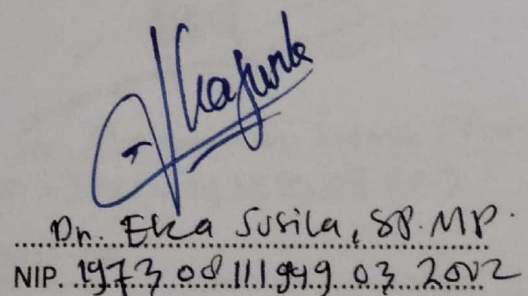 Dr. Eka Susila, SP. MP.
NIP. 1973 08 11 1999 03 2002